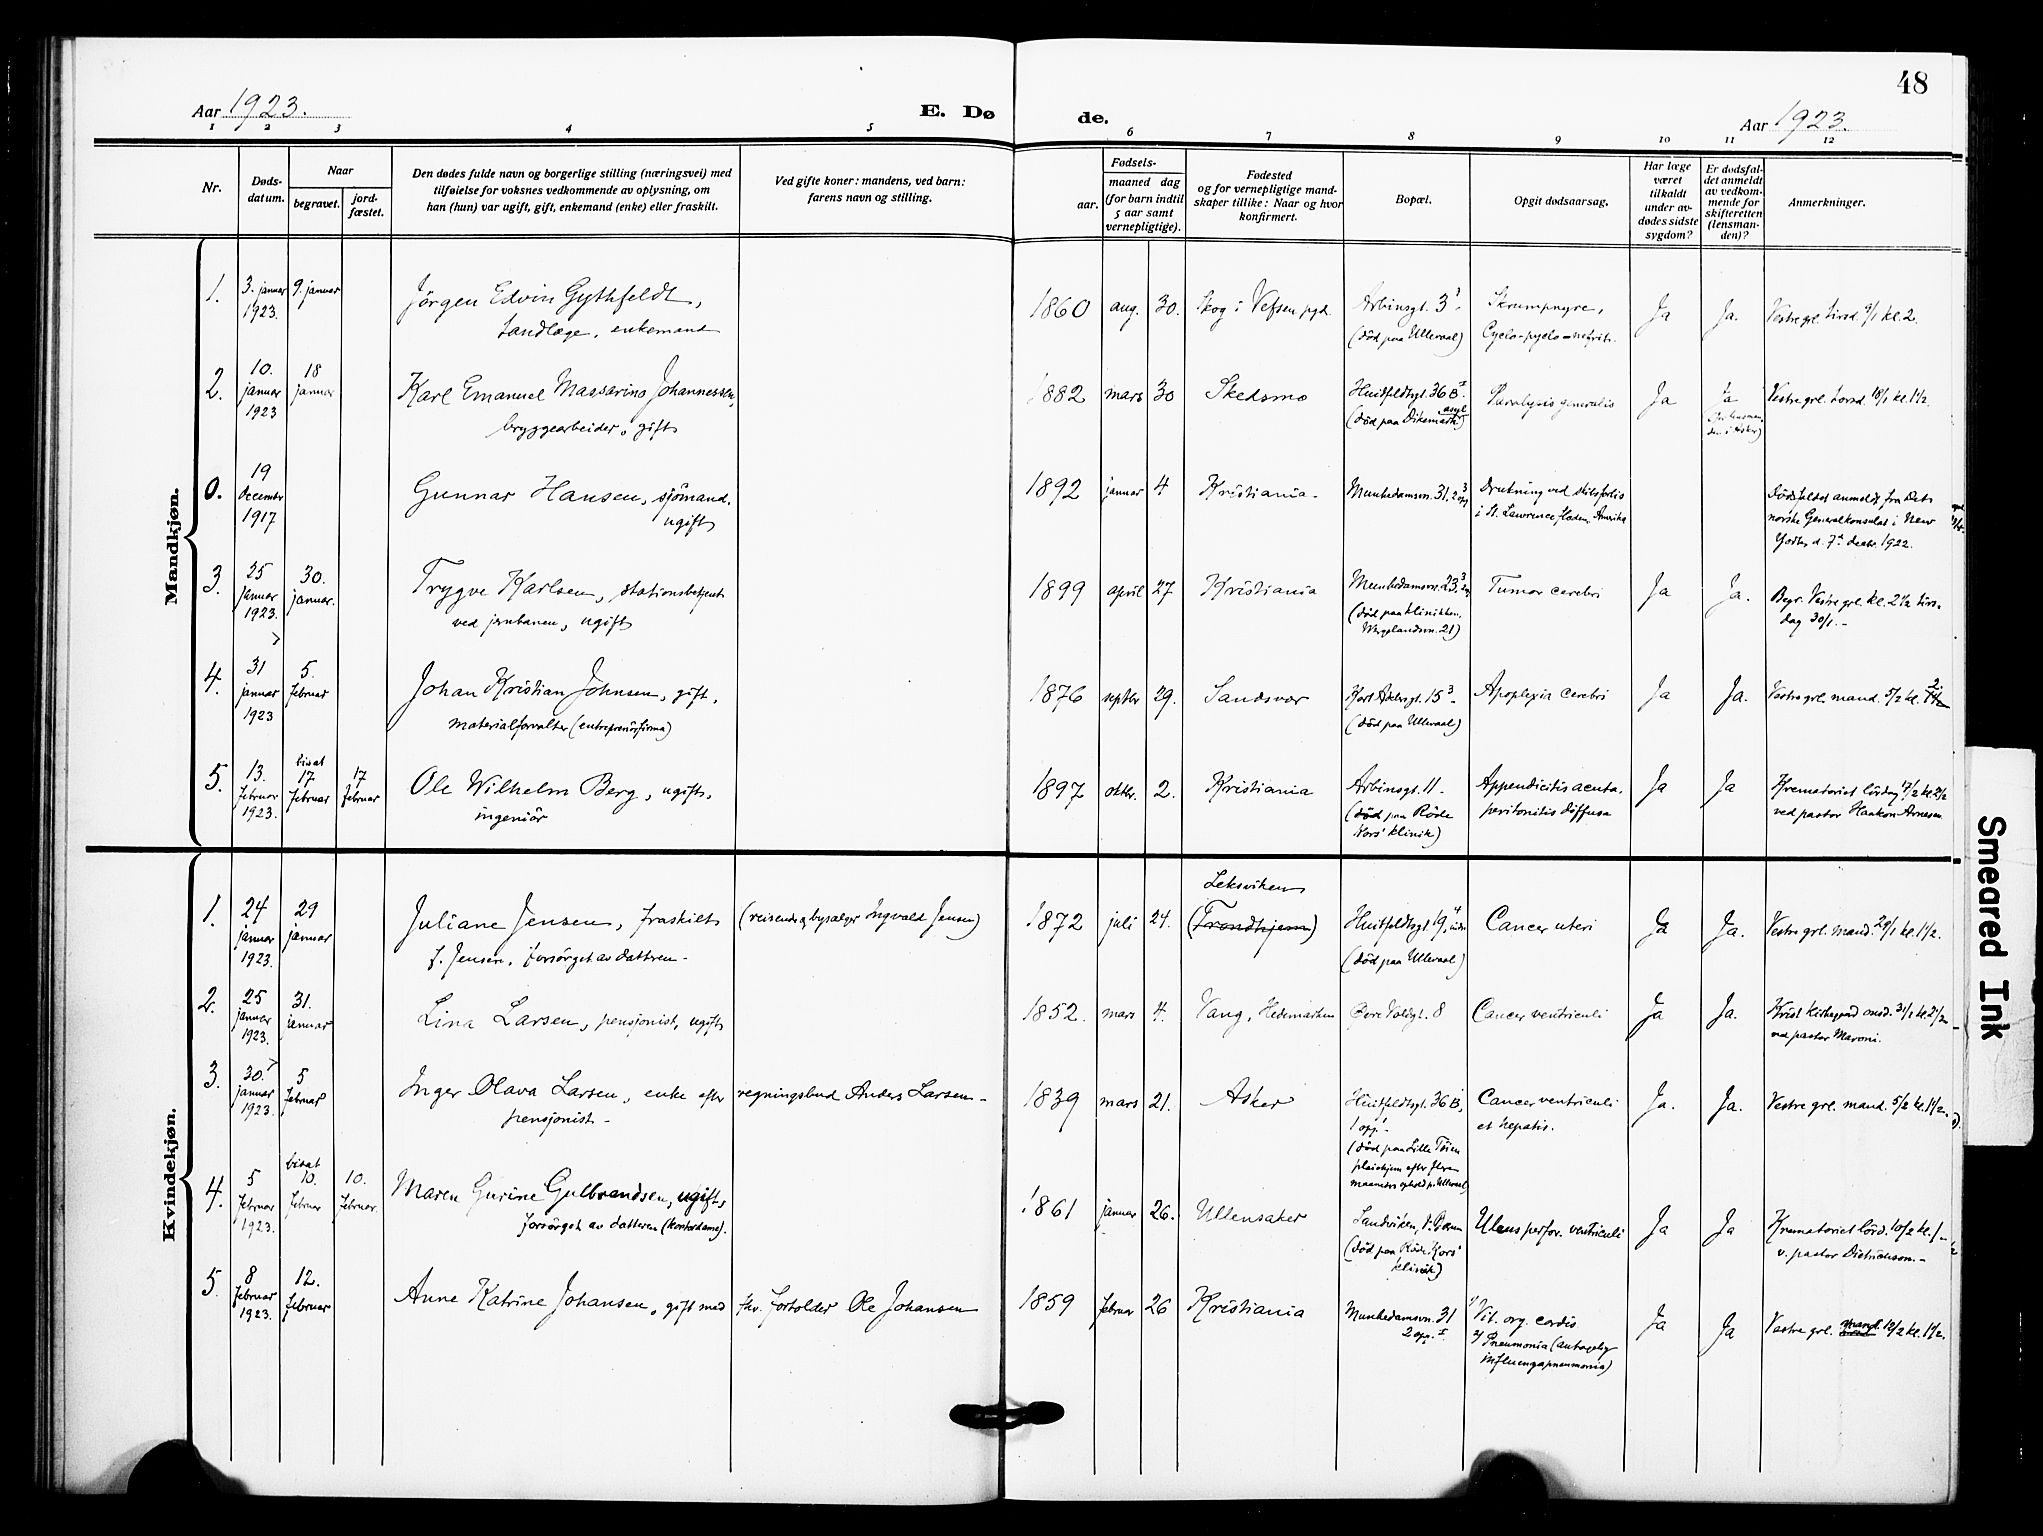 48
Aar 1923.
E. Dø
de.
Aar 1923.
1 2 3 4 5 6 7 8 9 10 11 12
Nr.
Døds-
datum.
Naar
begravet.
jord-
fæstet.
Den dødes fulde navn og borgerlige stilling (næringsvei) med
tilføielse for voksnes vedkommende av oplysning, om
han (hun) var ugift, gift, enkemand (enke) eller fraskilt.
Ved gifte koner: mandens, ved barn:
farens navn og stilling.
Fødsels-
aar.
maaned dag
(for barn indtil
5 aar samt
vernepligtige).
Fødested
og for vernepligtige mand-
skaper tillike: Naar og hvor
konfirmert.
Bopæl.
Opgit dødsaarsag.
Har læge
været
tilkaldt
under av-
dødes sidste
sygdom?
Er dødsfal-
det anmeldt
av vedkom-
mende for
skifteretten
(lensman-
den)?
Anmerkninger.
Mandkjøn.
1.
3. januar
1923.
9. januar
Jörgen Edvin Gythfeldt,
tandlæge, enkemand
1860 aug. 30.
Skog i Vefsen pgd.
Arbinsgt. 3
(död paa Ulleraal)
Skrumpnyre,
Cyclo-pyelo-nefrit.
Ja
Ja.
Vestre grl. tirsd. 9/1 kl. 2.
2.
10.
januar
1923
18
januar
Karl Emanuel Massarino Johannessen,
bryggearbeider, gift
1882 mars 30
Skedsmo
Huitfeldtsgt. 36 B.
asyl
(död paa Dikemark)
Paralysis generalis
Ja
Ja
Vestre grl. torsd. 18/1 kl. 1½.
0.
19
december
1917
Gunnar Hansen, sjömand.
ugift
1892 januar 4
Kristiania
Munkedamsvn. 31. 2 opg
Drukning ved skibsforlis
i St. Lawrence floden, Amerika
Dödsfaldet anmeldt fra Det
norske Generalkonsulat i New
York d. 7de decbr. 1922.
3.
25
januar
1923.
30.
januar.
Trygve Karlsen, stationsbetjent
ved jernbanen, ugift
1899 april 27
Kristiania
Munkedamsvn. 23
(död paa klinikken,
Wergelandsvn. 21)
Tumor cerebri
Ja
Ja.
Begr. Vestre grl. kl. 2½ tirs-
dag 30/1.
4.
31
januar
1923
5.
februar
Johan Kristian Johnsen, gift,
materialforvalter (entreprenörfirma)
1876 septbr 29.
Sandsvær
Karl Johnsgt. 15
(död paa Ulleraal)
Apoplexia cerebri
Ja
Ja.
Vestre grl. mand. 5/2 kl. 2
5.
13.
februar
1923.
bisat
17
februar
17
februar
Ole Wilhelm Berg, ugift,
ingeniör
1897 oktbr. 2.
Kristiania
Arbinsgt. 11
(död paa Röde
Kors' klinik)
Appendicitis acuta,
peritonitis diffusa
Ja
Ja
Krematoriet lördag 17/2 kl. 2½
ved pastor Haakon Arnesen.
Kvindekjøn.
1.
24
januar
1923.
29
januar
Juliane Jensen, fraskilt
f. Jensen, forsörget av datteren
(reisende og bysælger Ingvald Jensen)
1872 juli 24.
Leksviken
(Trondhjem)
Huitfeldtsgt. 19
(död paa Ulleraal)
Cancer uteri
Ja
Ja.
Vestre grl. mand. 29/1 kl. 1½.
2.
25
januar
1923.
31.
januar
Lina Larsen, pensjonist, ugift
1852. mars 4.
Vang, Hedemarken
Övre Voldgt. 8
Cancer ventriculi
Ja
Ja.
Krist kirkegaard onsd. 31/1 kl. 2½
ved pastor Maroni.
3.
30.
januar
1923.
5
februar
Inger Olava Larsen, enke efter
pensjonist
regningsbud Anders Larsen
1839 mars 21.
Asker
Huitfeldtsgt. 36 B,
1 opg.
(död paa Lille Töien
pleiehjem efter flere
maaneders ophold p. Ulleraal)
Cancer ventriculi
et hepatis.
Ja.
Ja.
Vestre grl. mand. 5/2 kl. 1½.
4.
5
februar
1923.
bisat
10.
februar
10.
februar.
Maren Gurine Gulbrandsen, ugift,
forsörget av datteren (kontordame).
1861 januar 26.
Ullensaker
Sandviken, V. Bærum
(död paa Röde Kors'
klinik)
Ulcus perfor. ventriculi
Ja
Ja
Krematoriet lörd. 10/2 kl. 1
v. pastor Dietrichson.
5.
8
februar
1923.
12.
februar
Anne Katrine Johansen, gift med
fhv. forholder Ole Johansen
1859 februar 26
Kristiania
Munkedamsvn. 31
2 opg. I
1/ Vit. org. cordis
2/ Pneumonia (antagelig
influenzapneumonia)
Ja
Ja
Vestre grl. mand. 12/2 kl. 1½.
Smeared Ink